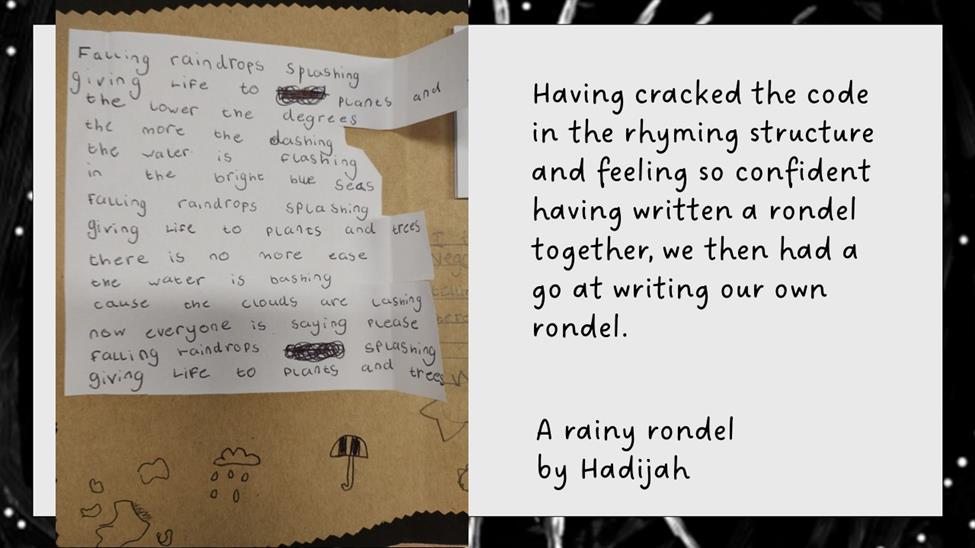 Falling raindrops splashing
giving life to plants and
the lower the degrees
the more the dashing
the water is flashing
in the bright blue seas
Falling raindrops splashing
giving life to plants and trees
there is no more ease
the water is bashing
cause the clouds are lashing
now everyone is saying please
falling raindrops splashing
giving life to plants and trees
Having cracked the code
in the rhyming structure
and feeling so confident
having written a rondel
together, we then had a
go at writing our own
rondel.
A rainy rondel
by Hadijah